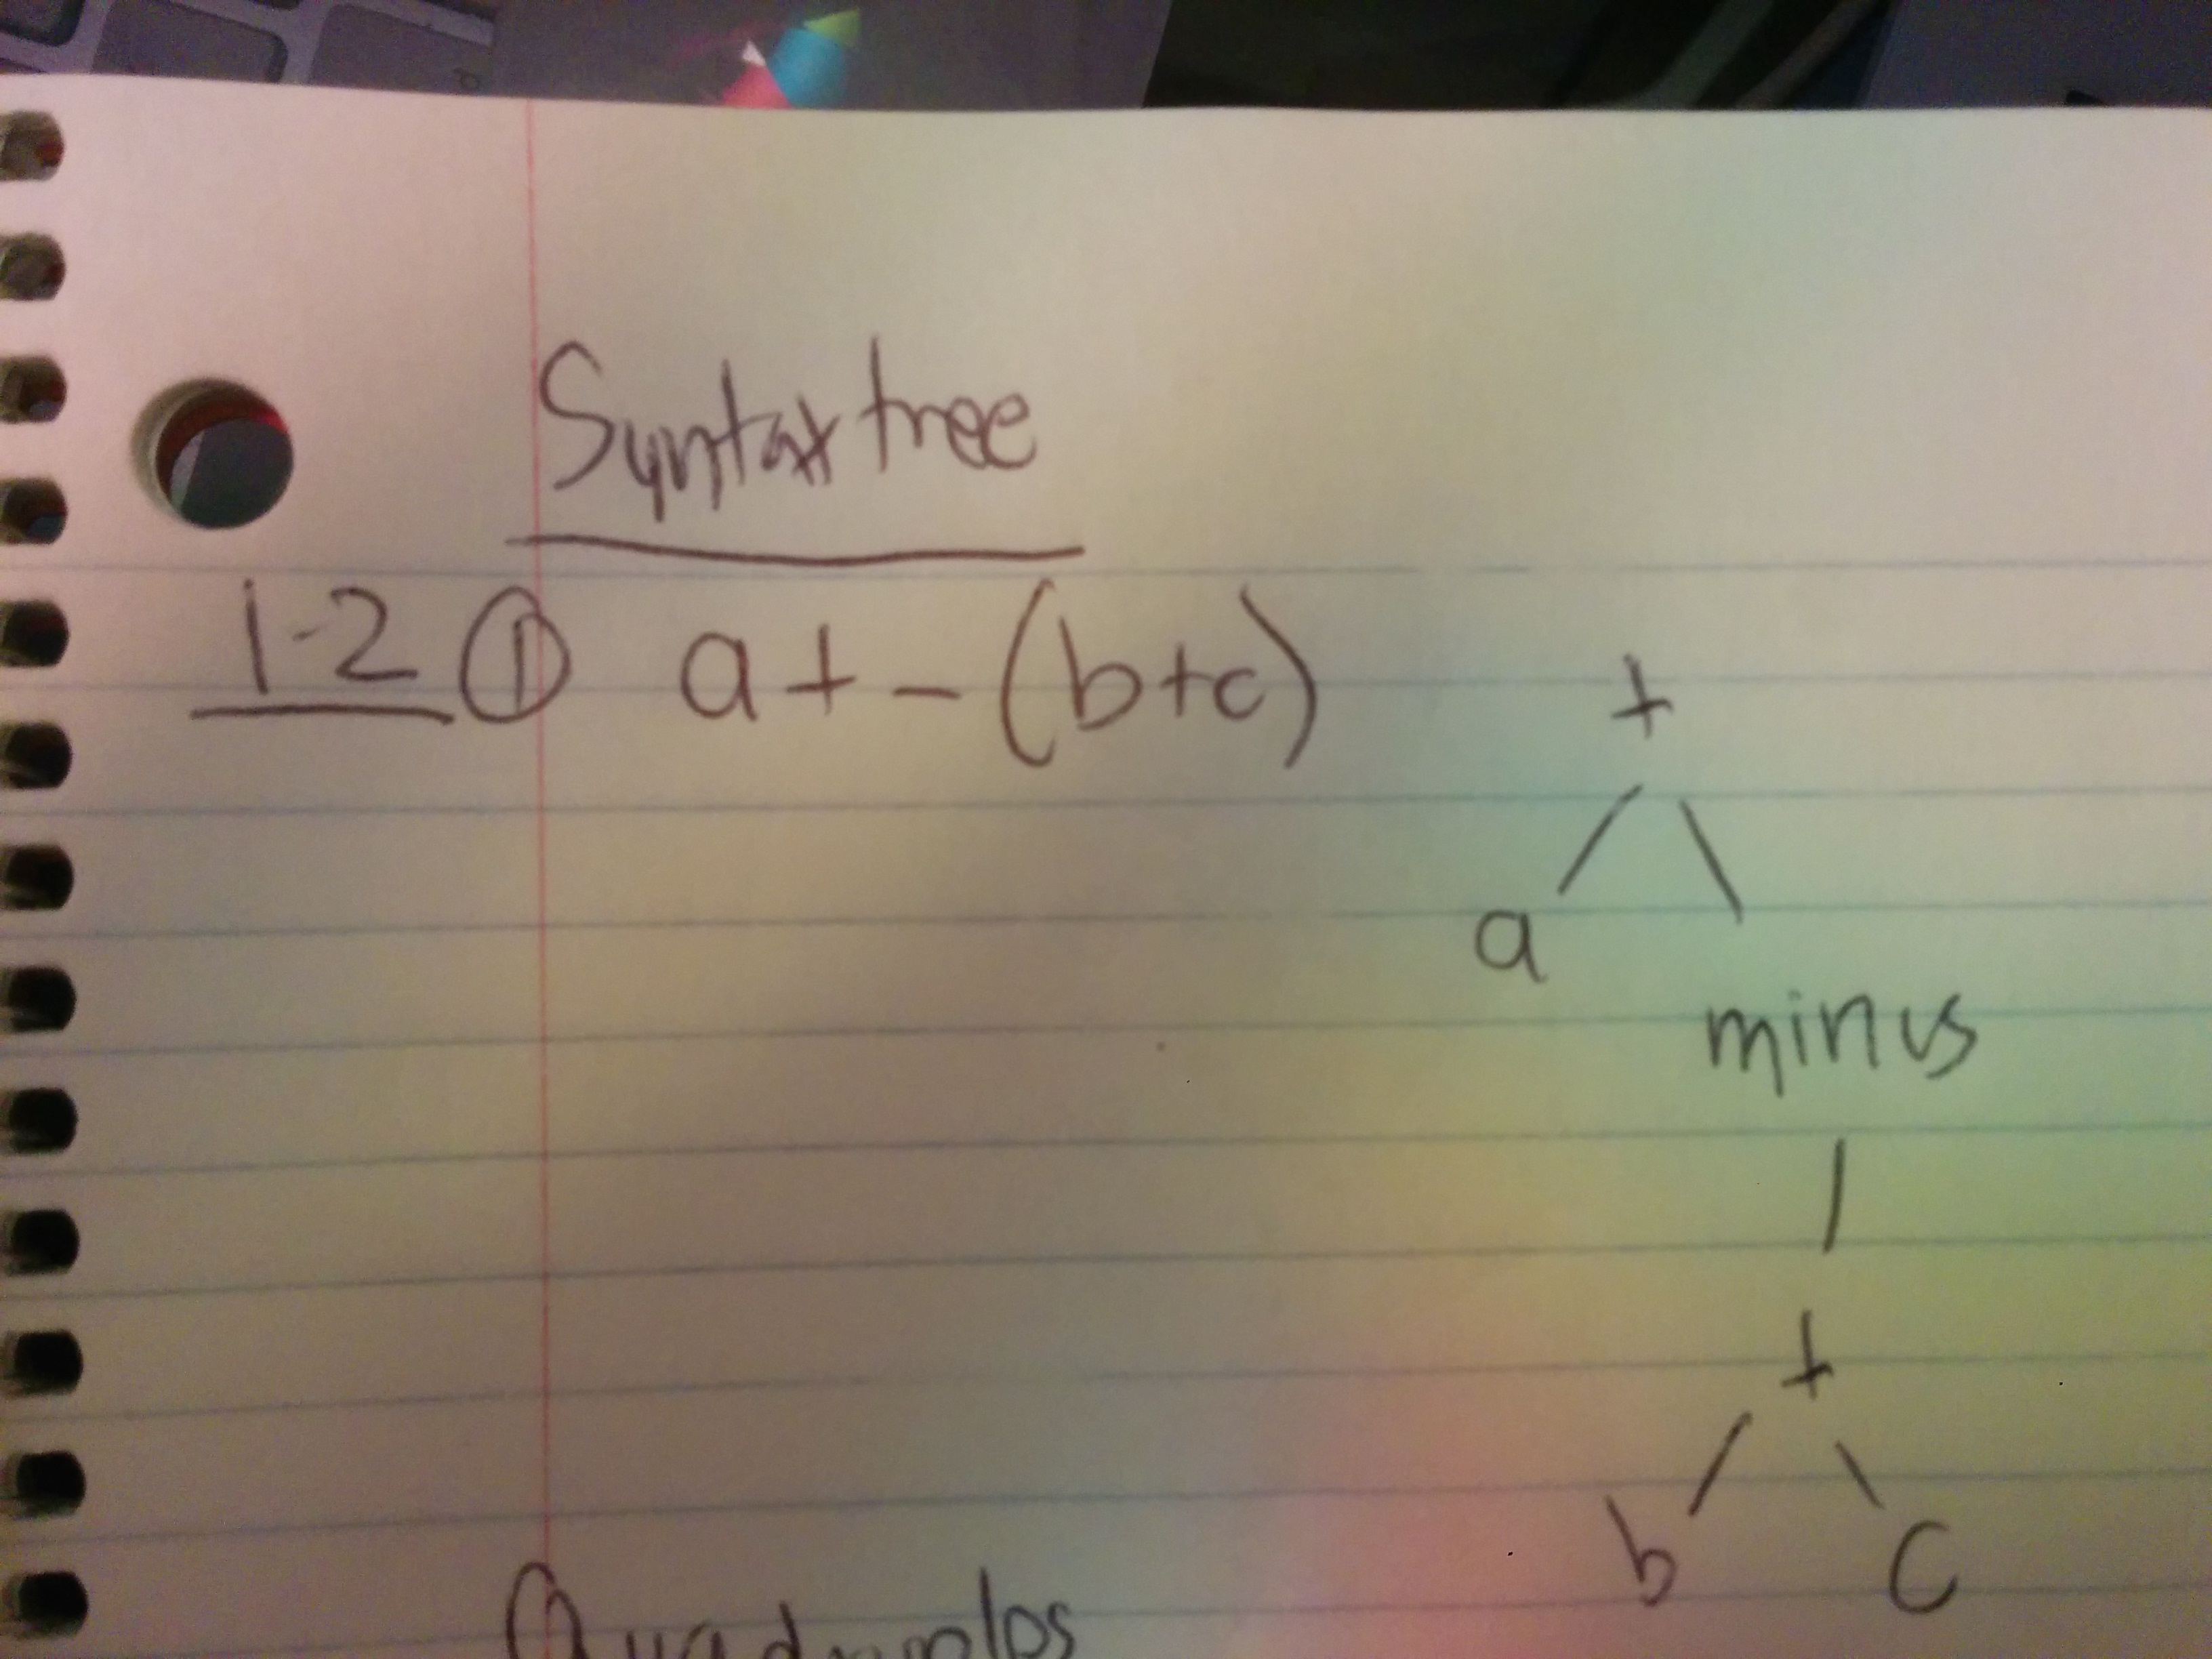 Syntax tree
1-2 ① a + - (b+c)
+
a
minus
+
b c
Quadruples